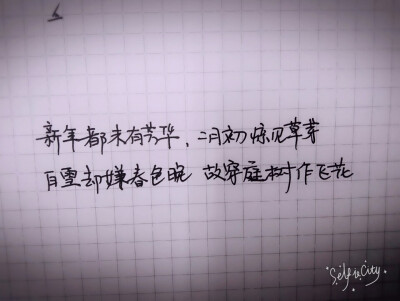 新年都未有芳华，二月初惊见草芽
白雪却嫌春色晚 故穿庭树作飞花
Self to City